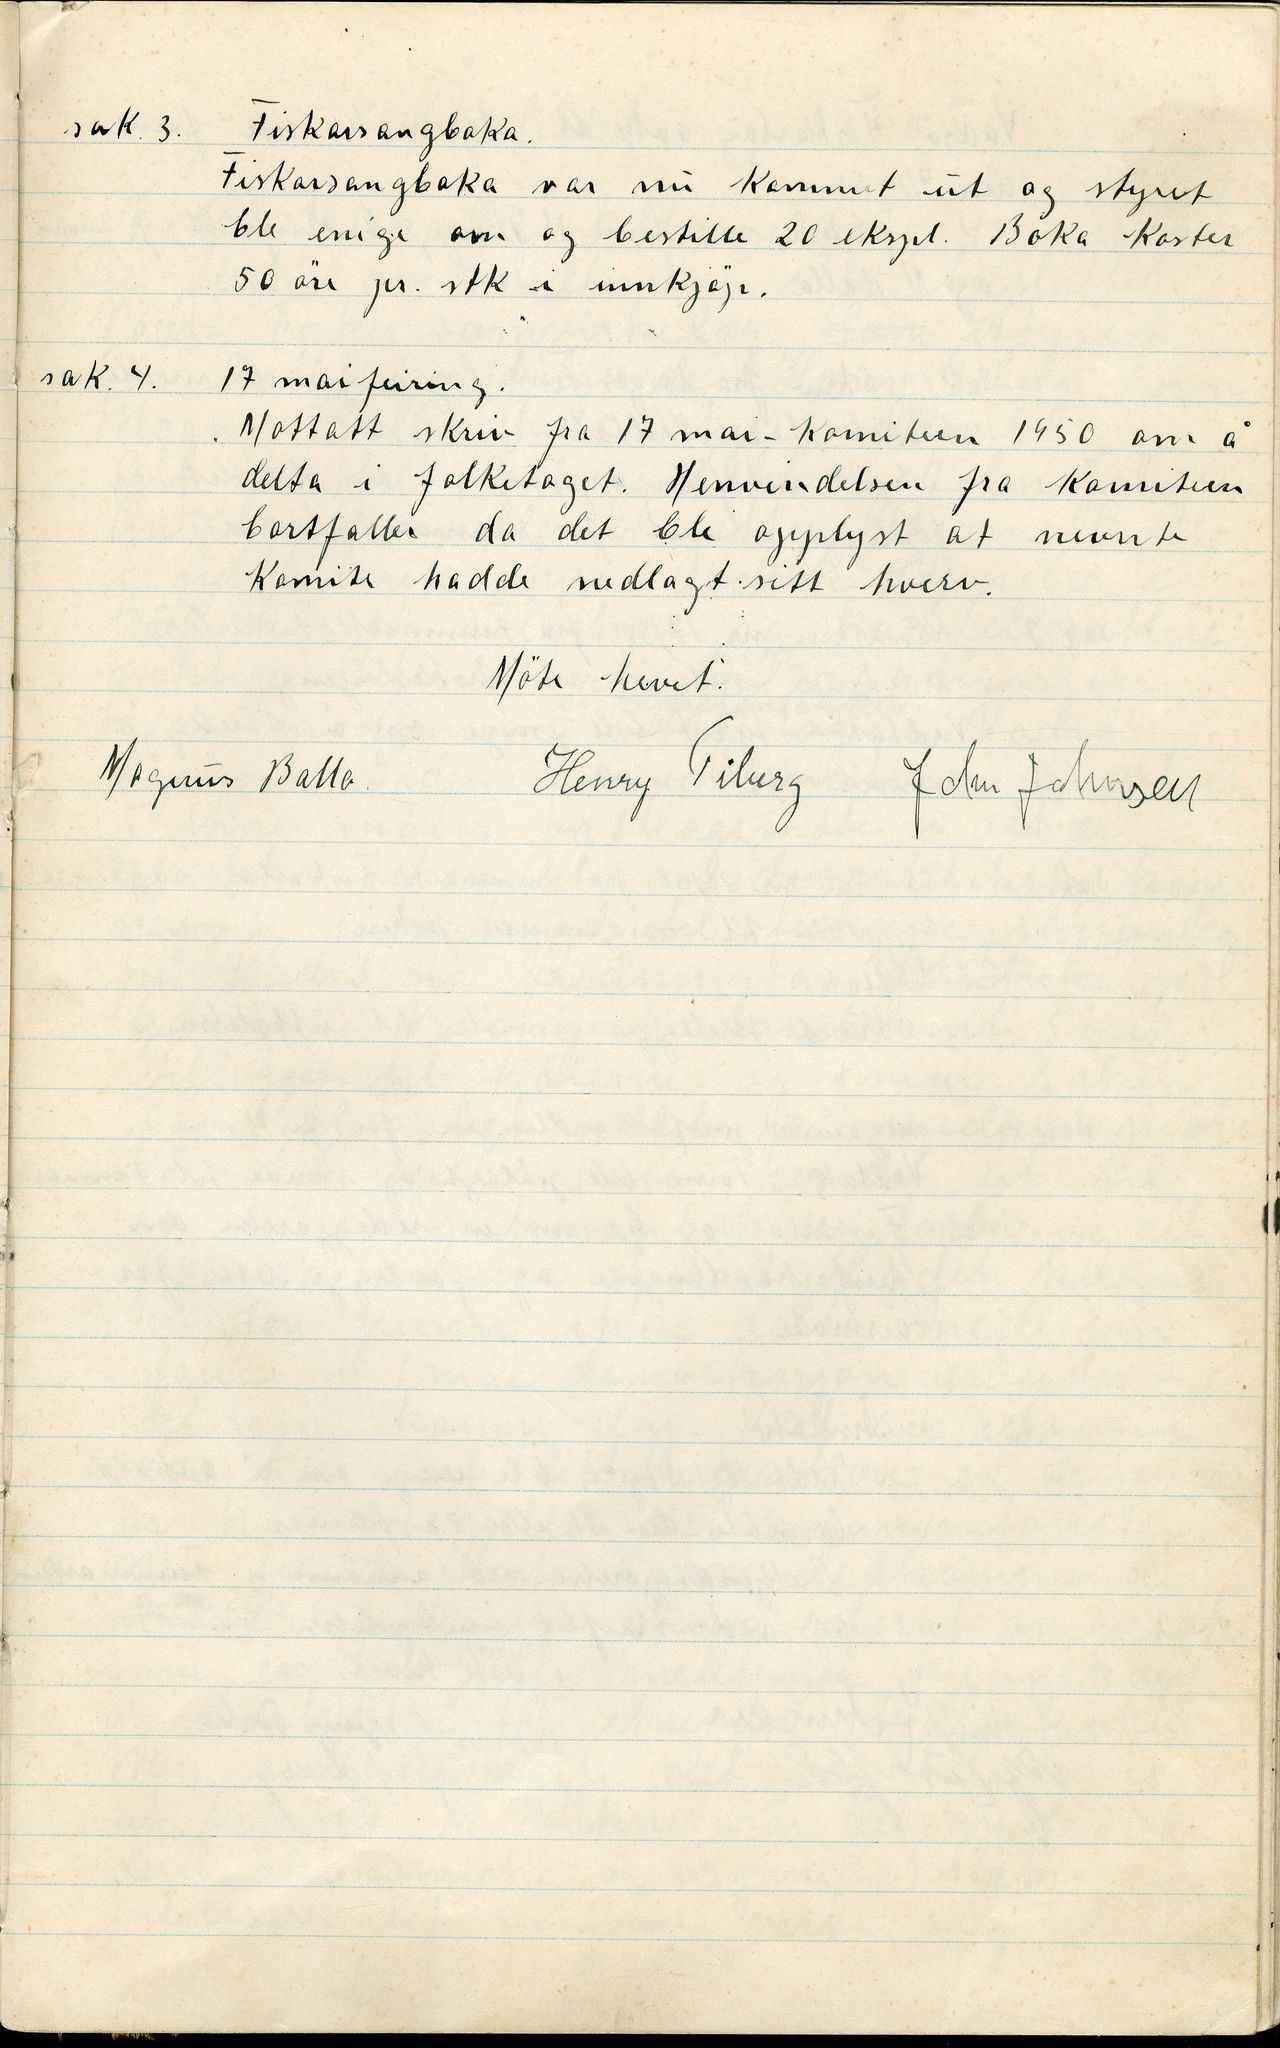 sak. 3. Fiskarsangboka.
Fiskarsangboka var nu kommet ut og styret
ble enige om og bestille 20 ekspl. Boka koster
50 öre pr. stk i innkjöp.
sak. 4. 17 mai feiring.
Mottatt skriv fra 17 mai-komiteen 1950 om å
delta i folketoget. Henvendelsen fra komiteen
bortfaller da det ble opplyst at nevnte
komite hadde nedlagt sitt hverv.
Möte hevet.
Magnus Balla. Henry Tiberg John Johnsen